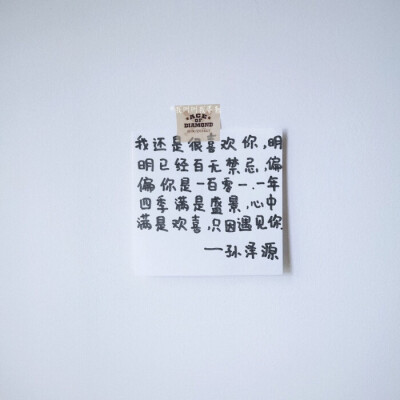 ACE
OF
DIAMOND
我还是很喜欢你,明
明已经百无禁忌,偏
偏你是一百零一.一年
四季满是盛景,心中
满是欢喜,只因遇见你.
一孙泽源